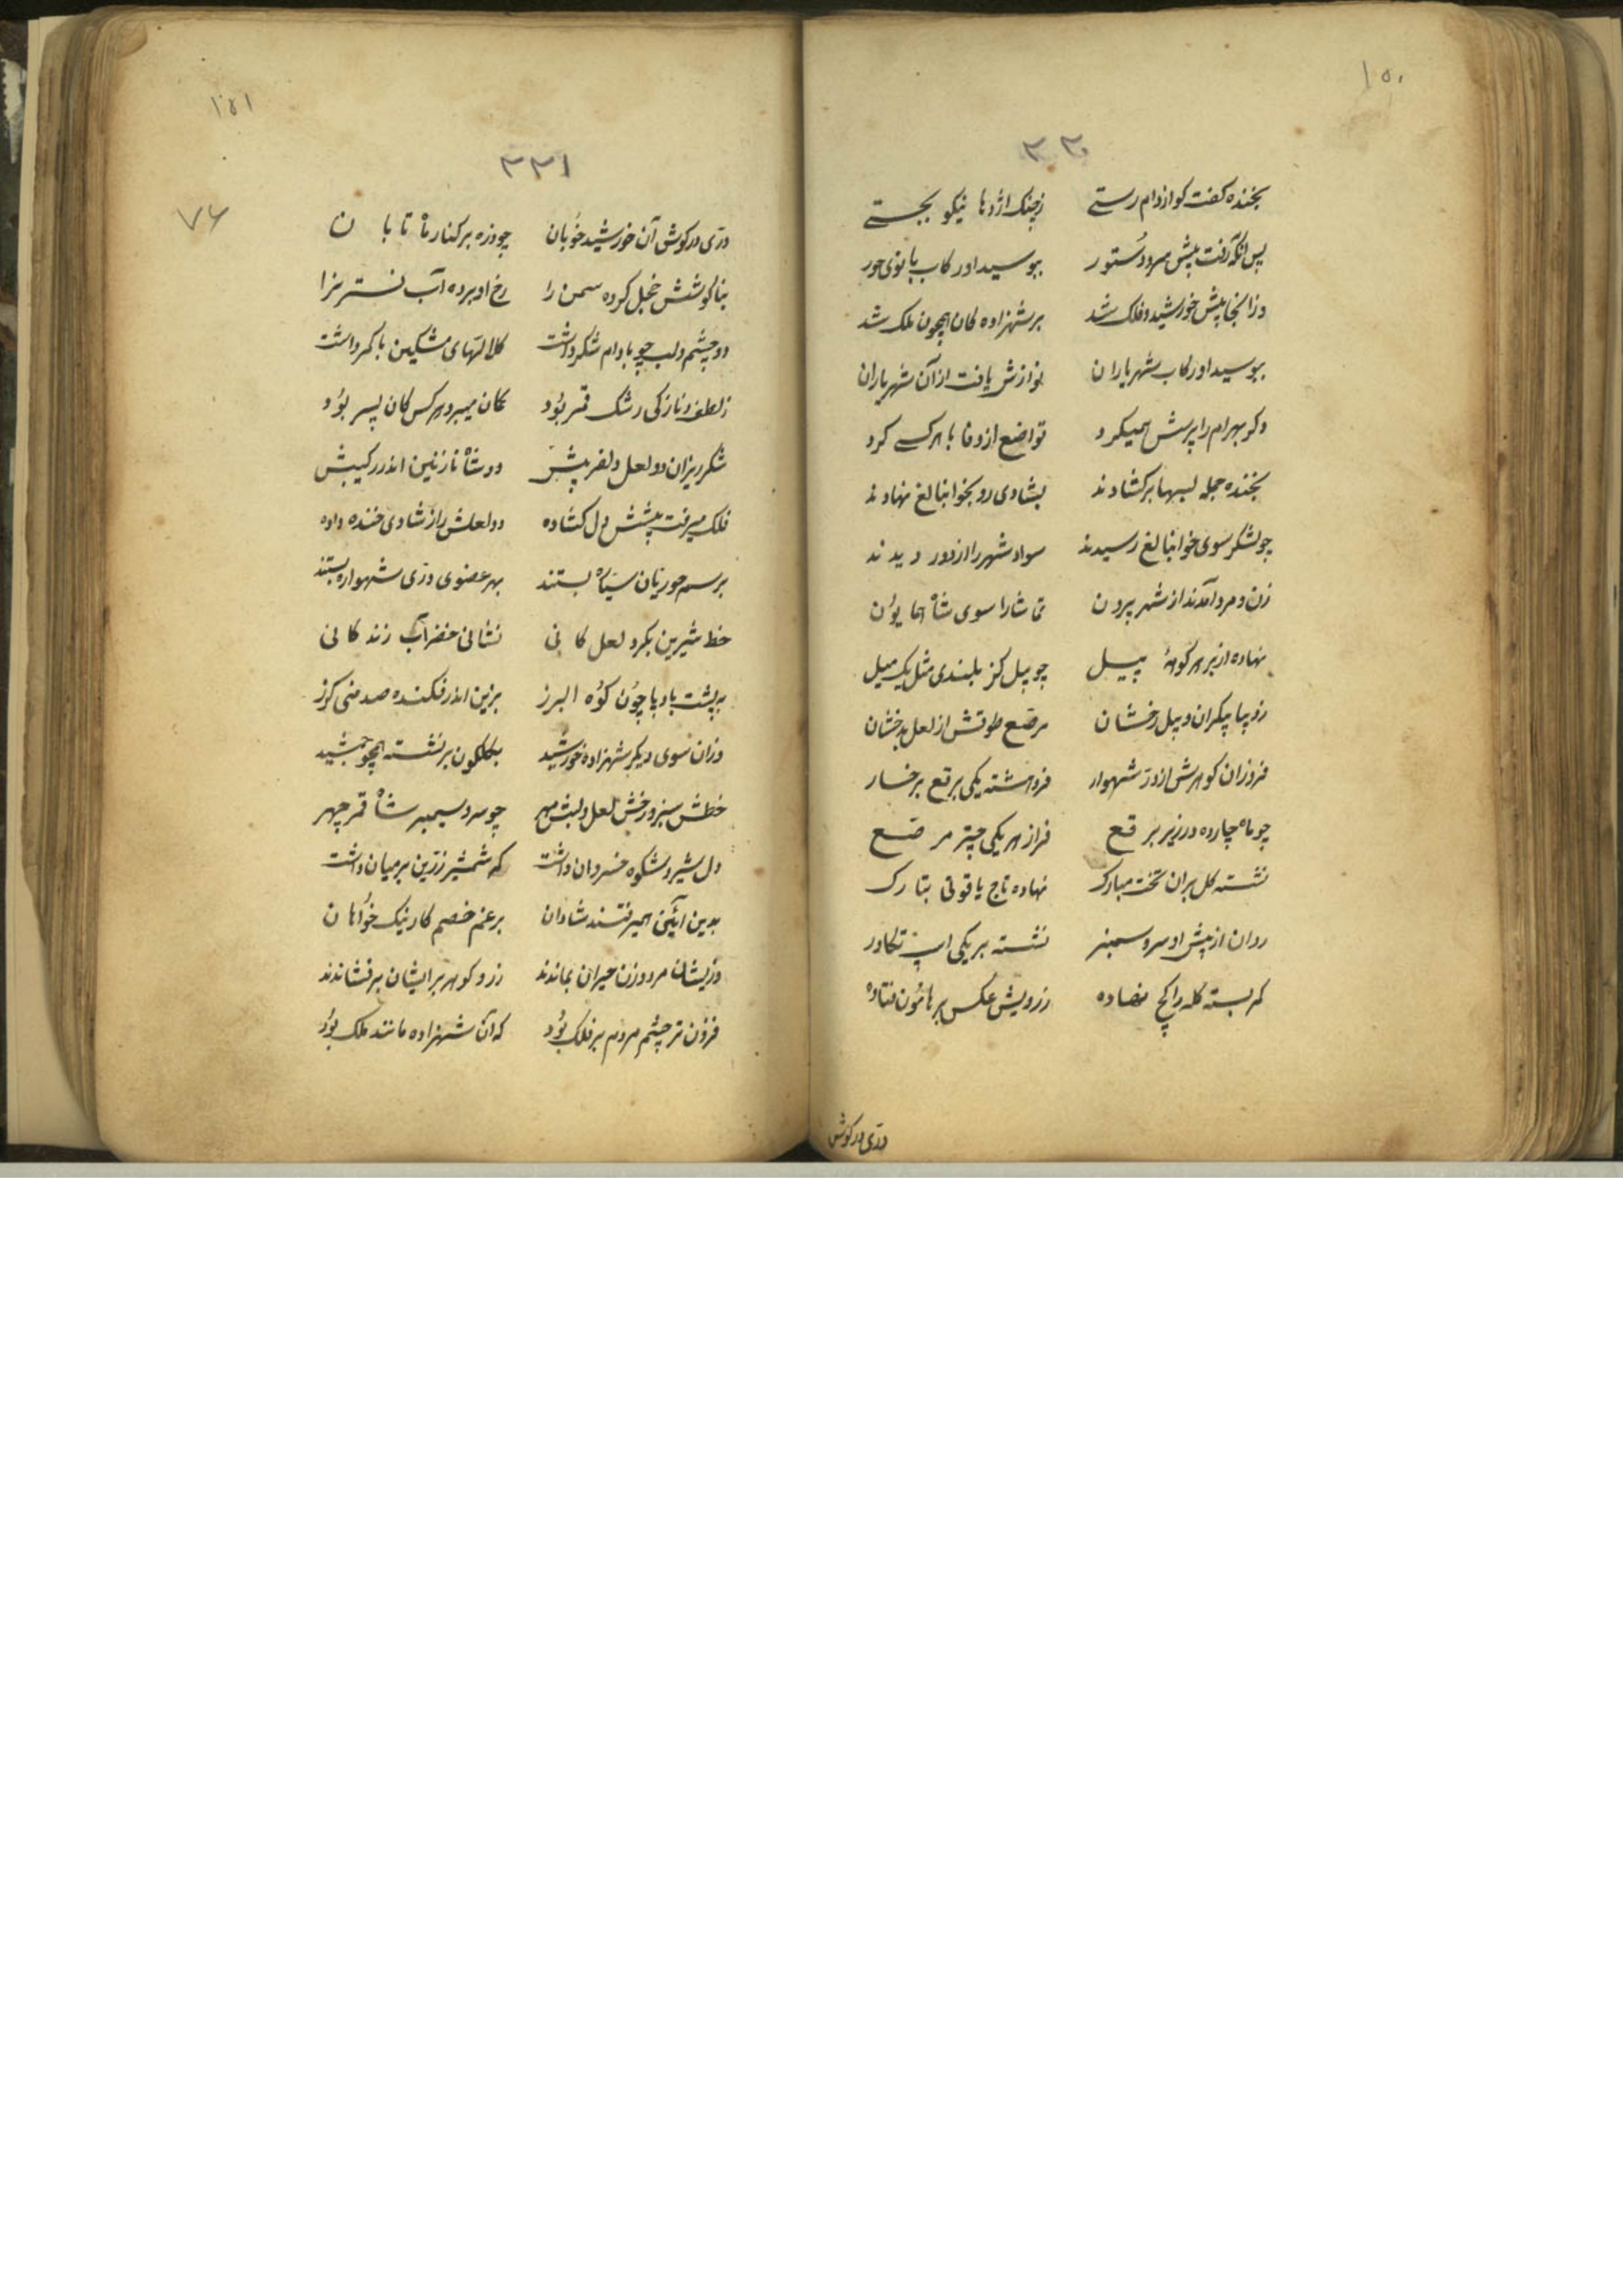 ۱۵۰
۳۳۰
بخنده کفت کو از دام رستے زچنک اژدها نیکو بجستے
پس آنکه رفت پیش سرو دستور ببوسید او رکاب بانوی حور
وز آنجا پیش خورشید و فلک شد بر شهزاده کان همچون ملک شد
ببوسید او رکاب شهریاران نوازش یافت از آن شهریاران
دکر بهرام را پرسش همیکرد تواضع از وفا با هر کسے کرد
بخنده جمله لبها برکشادند بشادی رو بخوابنالغ نهادند
چو لشکر سوی خوابنالغ رسیدند سواد شهر را از دور دیدند
زن و مرد آمدند از شهر بیرون تماشا را سوی شاه همایون
نهاده از بر هر کوههٔ پیل چو پیل کز بلندی مثل یک میل
ز دیبا پیکران و پیل رخشان مرصّع طوقش از لعل بدخشان
فروزان کوهرش از درّ شهوار فروهشته یکی برقع برخسار
چو ماه چارده در زیر برقع فراز هر یکی چتر مرصّع
نشسته کل بران تخت مبارک نهاده تاج یاقوتی بتارک
روان از پیش او سرو سمنبر نشسته بر یکی اسپ تکاور
کمر بسته کله را کج نهاده ز رویش عکس بر هامون فتاده
درّی در کوش
۱۵۱
۳۳۱
۷۶
درّی در کوش آن خورشید خوبان چو ذره بر کنار ماه تابان
بناکوشش خجل کرده سمن را رخ او برده آب نسترنرا
دو چشم و لب چو بادام شکر داشت کلالتهای مشکین با کمر داشت
ز لطف و نازکی رشک قمر بود کمان میبرد هر کس کان پسر بود
شکرریزان دو لعل دلفریبش دو شاه نازنین اندر رکیبش
فلک میرفت پیشش دل کشاده دو لعلش را ز شادی خنده داده
برسم حوریان سیّاره بستند بهر عضوی درّی شهواره بستند
خط شیرین بکرد لعل کانی نشانی خضر آب زندکانی
به پشت بادپا چون کوه البرز بزین اندر فکنده صد منی کرز
وزان سوی دیکر شهزاده خورشید بکلکون بر نشسته همچو جمشید
خطش سبز و رخش لعل و لبش مهر چو سرو سیمبر شاه قمر چهر
دل شیر و شکوه خسروان داشت که شمشیر زرّین بر میان داشت
بدین آئین همیرفتند شادان برغم خصم کار نیک خواهان
وزیشان مرد و زن حیران بماندند زر و کوهر بر ایشان برفشاندند
فزون تر چشم مردم بر فلک بود که آن شهزاده مانند ملک بود